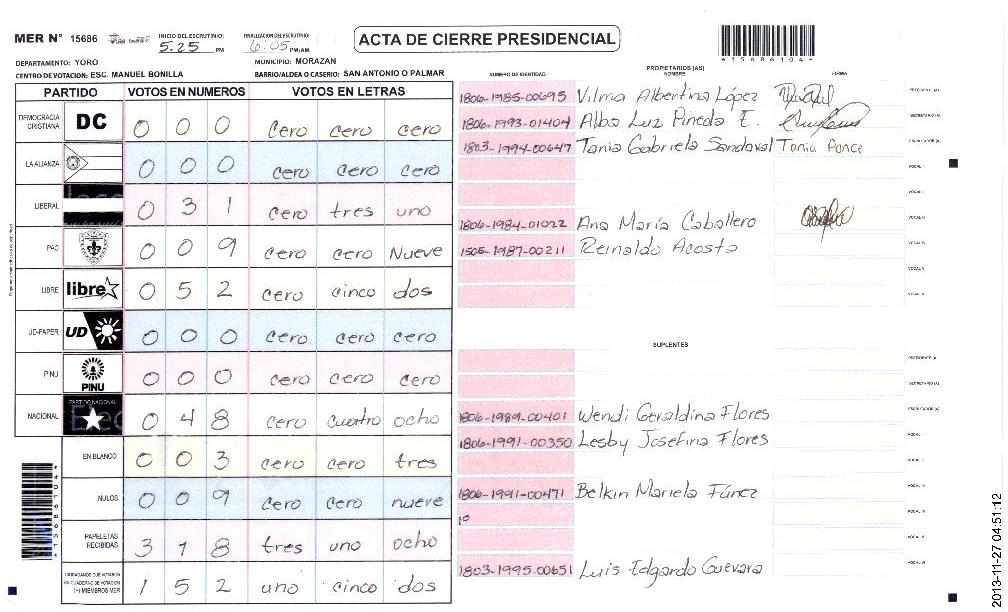 MER N° 15686
INICIO DEL ESCRUTINIO: 5.25 PM
FINALIZACION DEL ESCRUTINIO: 6:05 PM/AM
ACTA DE CIERRE PRESIDENCIAL
*15686104*
DEPARTAMENTO: YORO
MUNICIPIO: MORAZAN
CENTRO DE VOTACION: ESC. MANUEL BONILLA
BARRIO/ALDEA O CASERIO: SAN ANTONIO O PALMAR
PARTIDO VOTOS EN NUMEROS VOTOS EN LETRAS
DEMOCRACIA CRISTIANA DC 0 0 0 cero cero cero
LA ALIANZA 0 0 0 cero cero cero
LIBERAL 0 3 1 cero tres uno
PAC 0 0 9 cero cero Nueve
LIBRE libre 0 5 2 cero cinco dos
UD-FAPER UD 0 0 0 cero cero cero
PINU PINU 0 0 0 cero cero cero
NACIONAL PARTIDO NACIONAL 0 4 8 cero cuatro ocho
EN BLANCO 0 0 3 cero cero tres
NULOS 0 0 9 cero cero nueve
PAPELETAS RECIBIDAS 3 1 8 tres uno ocho
CIUDADANOS QUE VOTARON EN CUADERNO DE VOTACION (+) MIEMBROS MER 1 5 2 uno cinco dos
PROPIETARIOS (AS)
NUMERO DE IDENTIDAD NOMBRE FIRMA
1806-1985-00695 Vilma Albertina López PRESIDENTE (A)
1806-1993-01404 Alba Luz Pineda E. SECRETARIO (A)
1803-1994-00647 Tania Gabriela Sandoval Tania Ponce ESCRUTADOR (A)
VOCAL I
VOCAL II
1806-1984-01022 Ana María Caballero VOCAL III
1505-1987-00211 Reinaldo Acosta VOCAL IV
VOCAL V
VOCAL VI
SUPLENTES
PRESIDENTE (A)
SECRETARIO (A)
1806-1989-00401 Wendi Geraldina Flores ESCRUTADOR (A)
1806-1991-00350 Lesby Josefina Flores VOCAL I
VOCAL II
1806-1991-00471 Belkin Mariela Fúnez VOCAL III
10 VOCAL IV
VOCAL V
1803-1995-00651 Luis Edgardo Guevara VOCAL VI
2013-11-27 04:51:12